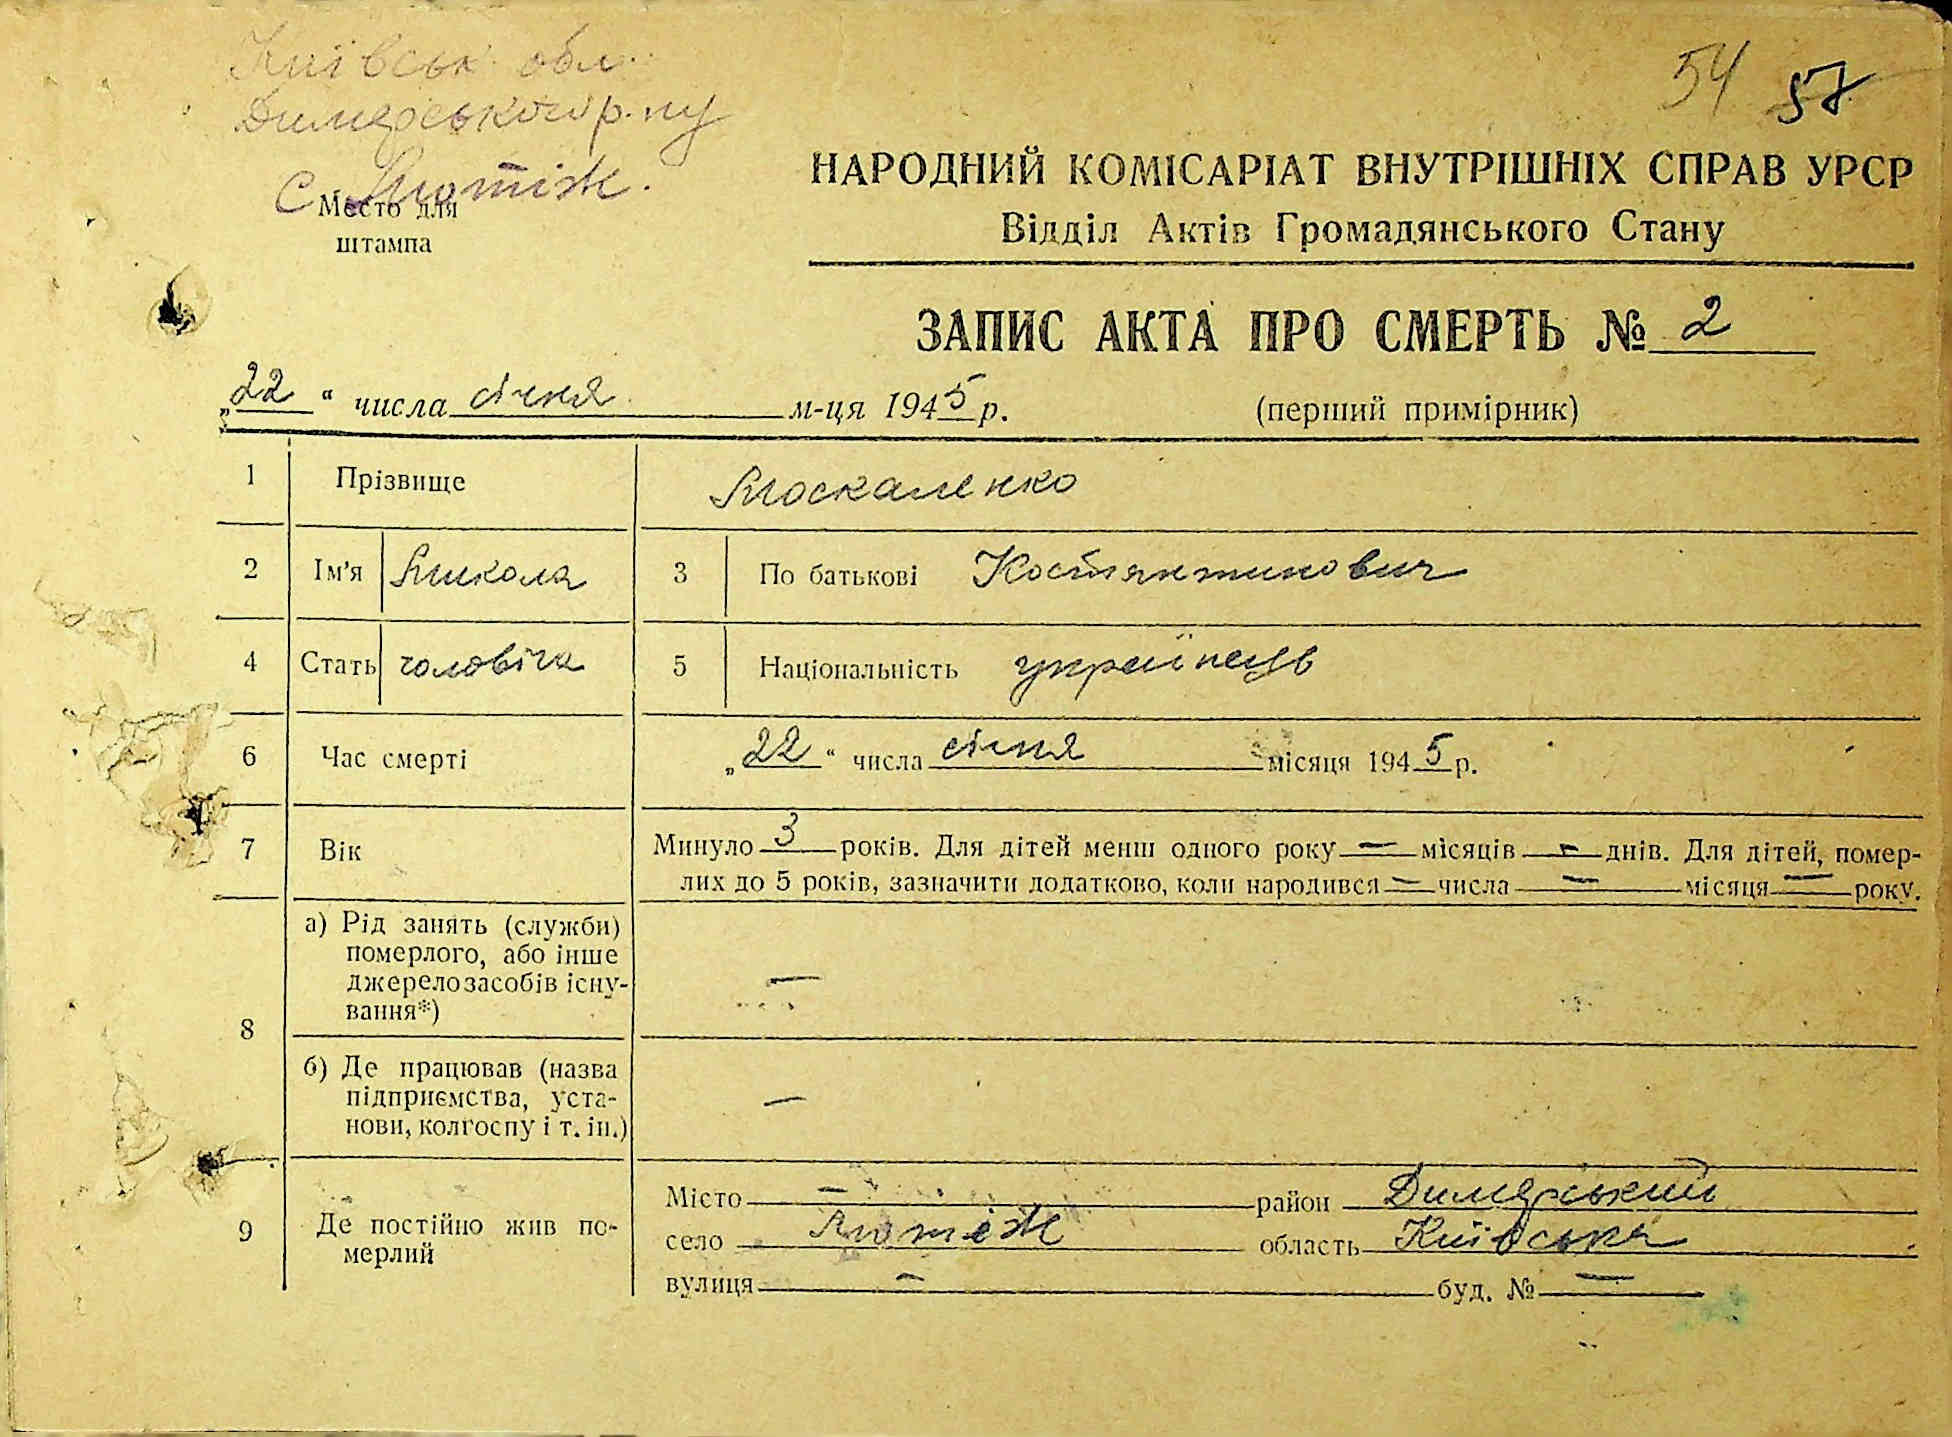 Київськ. обл.
54 57
Димерського р-ну
с. Лютіж.
Место для
штампа
НАРОДНИЙ КОМІСАРІАТ ВНУТРІШНІХ СПРАВ УРСР
Відділ Актів Громадянського Стану
ЗАПИС АКТА ПРО СМЕРТЬ № 2
„22“ числа січня м-ця 1945 р.
(перший примірник)
1 Прізвище Москаленко
2 Ім'я Микола 3 По батькові Костянтинович
4 Стать чоловіча 5 Національність українець
6 Час смерті „22“ числа січня місяця 1945 р.
7 Вік Минуло 3 років. Для дітей менш одного року — місяців — днів. Для дітей, помер-
лих до 5 років, зазначити додатково, коли народився — числа — місяця — року.
8 а) Рід занять (служби)
померлого, або інше
джерело засобів існу-
вання*) —
б) Де працював (назва
підприємства, уста-
нови, колгоспу і т. ін.) —
9 Де постійно жив по-
мерлий
Місто — район Димерський
село Лютіж область Київська
вулиця — буд. № —